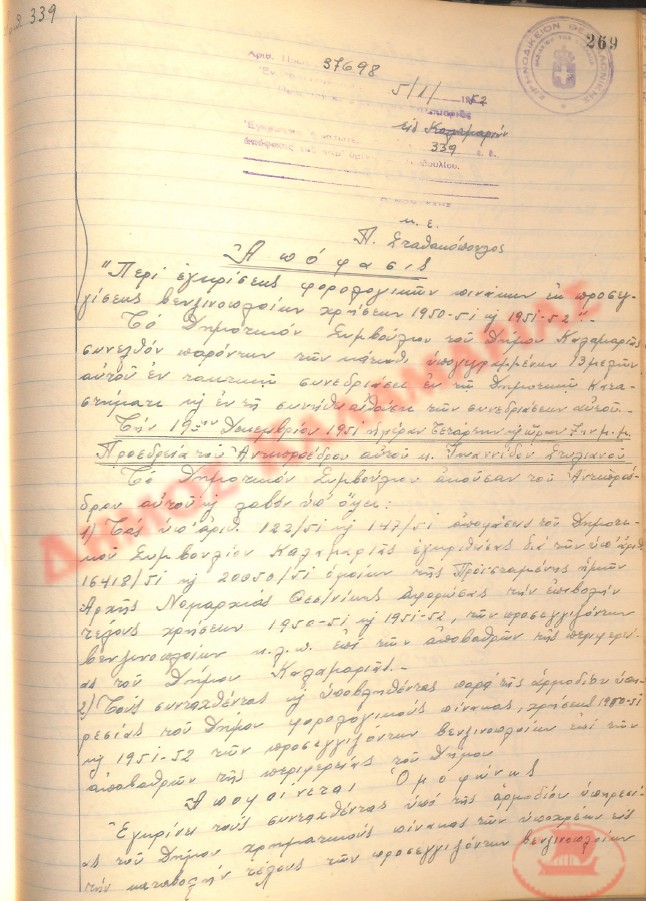 339
269
ΕΙΡΗΝΟΔΙΚΕΙΟΝ ΘΕΣΣΑΛΟΝΙΚΗΣ
Αριθ. Πρωτ. 37698
5/1/1952
εις Καλαμαριάν
339
Συμβουλίου.
κ. ε.
Π. Σταθακόπουλος
Ἀπόφασις
"Περί ἐγκρίσεως φορολογικῶν πινάκων ἐκ προσεγ-
γίσεως βενζινοπλοίων χρήσεων 1950-51 κ 1951-52".-
Τό Δημοτικόν Συμβούλιον τοῦ Δήμου Καλαμαριᾶς
συνελθόν παρόντων τῶν κάτωθι ὑπογεγραμμένων 13 μελῶν
αὐτοῦ ἐν τακτικῇ συνεδριάσει ἐν τῷ Δημοτικῷ Κατα-
στήματι κ ἐν τῇ συνήθει αἰθούσῃ τῶν συνεδριάσεων αὐτοῦ.-
Τήν 19ην Δεκεμβρίου 1951 ἡμέραν Τετάρτην κ ὥραν 7ην μ.μ.
Προεδρεία τοῦ Ἀντιπροέδρου αὐτοῦ κ. Ἰωαννίδου Στυλιανοῦ
Τό Δημοτικόν Συμβούλιον ἀκοῦσαν τοῦ Ἀντιπροέ-
δρου αὐτοῦ κ λαβόν ὑπ' ὄψει:
1) Τάς ὑπ' ἀριθ. 122/51 κ 147/51 ἀποφάσεις τοῦ Δημοτι-
κοῦ Συμβουλίου Καλαμαριᾶς ἐγκριθείσας διά τῶν ὑπ' ἀριθ.
16418/51 κ 20050/51 ὁμοίων τῆς Προϊσταμένης ἡμῶν
Ἀρχῆς Νομαρχίας Θεσ/νίκης ἀφορώσας τήν ἐπιβολήν
τέλους χρήσεων 1950-51 κ 1951-52, τῶν προσεγγιζόντων
βενζινοπλοίων κ.λ.π. ἐπί τῶν ἀποβαθρῶν τῆς περιφερεί-
ας τοῦ Δήμου Καλαμαριᾶς.-
2) Τούς συνταχθέντας κ ὑποβληθέντας παρά τῆς ἁρμοδίου ὑπη-
ρεσίας τοῦ Δήμου φορολογικούς πίνακας, χρήσεων 1950-51
κ 1951-52 τῶν προσεγγιζόντων βενζινοπλοίων ἐπί τῶν
ἀποβαθρῶν τῆς περιφερείας τοῦ Δήμου
Ἀποφαίνεται Ὁμοφώνως
Ἐγκρίνει τούς συνταχθέντας ὑπό τῆς ἁρμοδίου ὑπηρεσί-
ας τοῦ Δήμου χρηματικούς πίνακας τῶν ὑποχρέων εἰς
τήν καταβολήν τέλους τῶν προσεγγιζόντων βενζινοπλοίων
ΔΗΜΟΣ ΚΑΛΑΜΑΡΙΑΣ